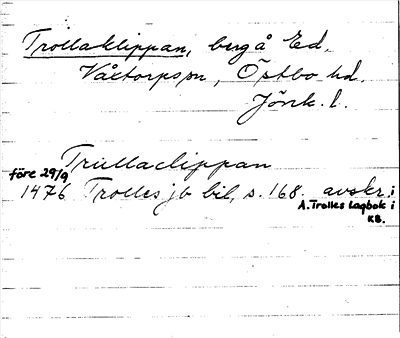 Trollaklippan, berg å Ed,
Våxtorps sn, Östbo hd.
Jönk. l.
Trullaclippan
före 29/9
1476 Trolles jb bil, s. 168. avskr. i
A. Trolles Lagbok i
KB.